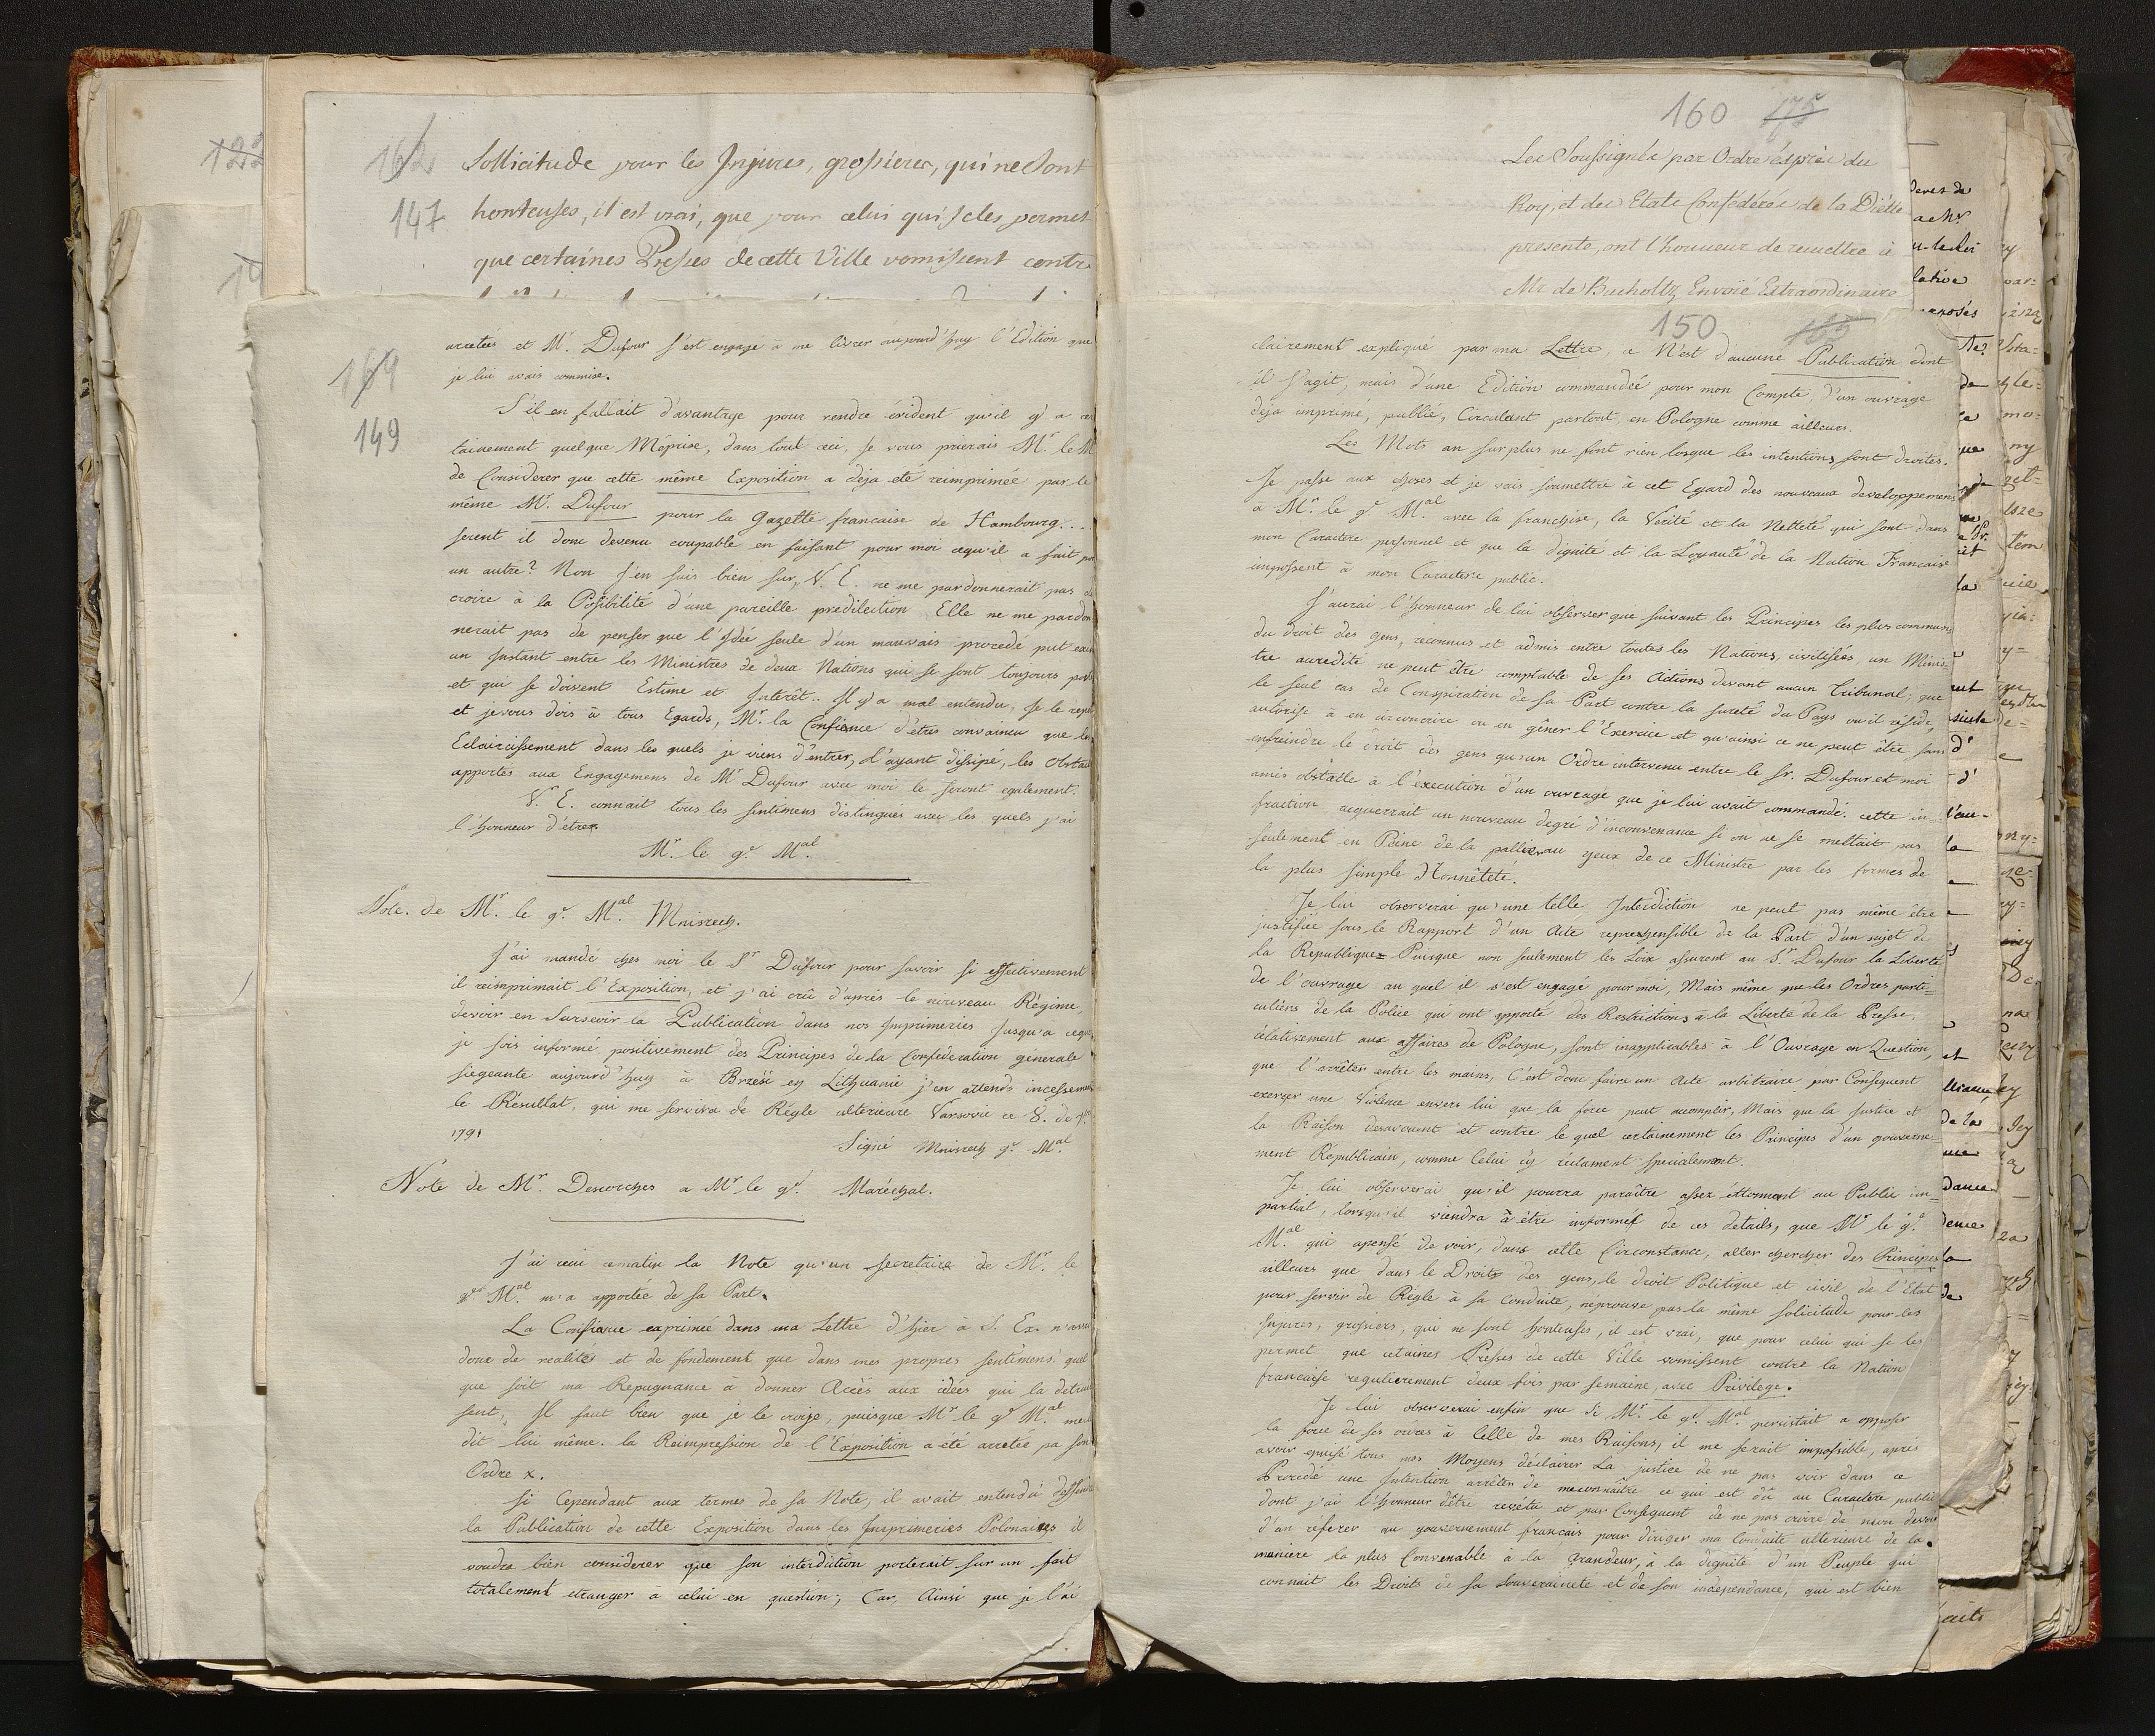 122
162
147
Sollicitude pour les Injures, grossieres, qui ne sont
honteuses, il est vrai, que pour celui qui se les permet
que certaines Presses de cette Ville vomissent contre
169
149
arretées et Mr. Dufour s'est engagé à me livrer aujourd'huy l'Edition que
je lui avais commise.
S'il en fallait d'avantage pour rendre évident qu'il y a cer
tainement quelque Méprise, dans tout ceci, je vous prierais Mr. le M
de Considerer que cette même Exposition a déja eté reimprimée par le
même Mr. Dufour pour la Gazette francaise de Hambourg....
serent il donc devenu coupable en faisant pour moi cequ'il a fait pour
un autre? Non j'en suis bien sur, V. E. ne me pardonnerait pas de
croire à la Possibilité d'une pareille predilection Elle ne me pardon
nerait pas de penser que l'Idée seule d'un mauvais procedé put
un Instant entre les Ministres de deux Nations qui se sont toujours
et qui se doivent Estime et Interêt.. Il y a mal entendu, je le
et je vous dois à tous Egards, Mr. la Confience d'etres convaincu que les
Eclaircissement dans les quels je viens d'entrer, l'ayant dissipé, les obstacl
apportés aux Engagemens de Mr Dufour avec moi le seront egalement.
V. E. connait tous les sentimens distingués avec les quels j'ai
l'honneur d'etre.
Mr. le gr. Mal.
Note. de Mr. le gr. Mal. Mniszech.
J'ai mandé chez moi le Sr Dufour pour savoir si effectivement
il reimprimait l'Exposition, et j'ai crû d'après le nouveau Régime,
devoir en Surseoir la Publication dans nos Imprimeries jusqu'a ceque
je sois informé positivement des Principes de la Confederation generale
siegeante aujourd'huy à Brześć en Lithuanie j'en attends incessement
le Résultat, qui me servira de Régle ulterieure Varsovie ce 8. de
1791
Signé Mniszech gr. Mal
Note de Mr. Descorches a Mr le gd. Maréchal.
J'ai recu cematin la Note qu'un secretaire de Mr. le
gd Mal. m'a apportée de sa Part.
La Confiance exprimée dans ma Lettre d'hier à S. Ex. n'avait
donc de realités et de fondement que dans mes propres sentimens quel
que soit ma Repugnance à donner Accès aux idées qui la detrui
sent, Il faut bien que je le croije, puisque Mr le gd Mal me le
dit lui même. la Reimpression de l'Exposition a été arretée pa son
Ordre x.
Si Cependant aux termes de sa Note, il avait entendu deffendre
la Publication de cette Exposition dans les Imprimeries Polonaises il
voudra bien considerer que son interdiction porterait sur un fait
totalement etranger à celui en question; Car, Ainsi que je l'ai
160 175
Les Soussignés par Ordre éxprès du
Roij, et des Etats Confédérés de la Diétte
presente, ont l'honneur de remettre à
Mr. de Bucholtz Envoié Extraordinaire
150
clairement expliqué par ma Lettre, ce N'est d'aucune Publication dont
il s'agit, mais d'une Edition commandée pour mon Compte, d'un ouvrage
déja imprimé, publié, Circulant partout, en Pologne comme ailleurs.
Les Mots au surplus ne font rien lorsque les intentions sont droites.
Je passe aux choses et je vais soumettre à cet Egard des nouveaux developpemens
a Mr. le gr. Mal avec la franchise, la Verité et la Netteté qui sont dans
mon Caractere personnel et que la dignité et la Loyauté de la Nation Francaise
imposent à mon Caractere public.
J'aurai l'honneur de lui observer que suivant les Principes les plus communs
du droit des gens, reconnus et admis entre toutes les Nations, civilisées, un Minis-
tre accredité ne peut être comptable de ses Actions devant aucun Tribunal; que
le seul cas de Conspiration de sa Part contre la sureté du Pays ou il réside,
autorise à en circonscrire ou en gêner l'Exercice et qu'ainsi ce ne peut être sans
enfreindre le droit des gens qu'un Ordre intervenu entre le Sr. Dufour et moi
amis obstacle à l'execution d'un ouvrage que je lui avait commandé. cette in-
fraction acquerrait un nouveau degré d'inconvenance si on ne se mettait pas
seulement en Peine de la pallier au yeux de ce Ministre par les formes de
la plus simple Honnêteté.
Je lui observerai qu'une telle Interdiction ne peut pas même être
justifiée sous le Rapport d'un Acte reprehensible de la Part d'un sujet de
la Republique Puisque non seulement les Loix assurent au Sr. Dufour la Liberté
de l'ouvrage au quel il s'est engagé pour moi, Mais même que les Ordres parti-
culiers de la Police qui ont apporté des Restrictions à la Liberté de la Presse,
relativement aux affaires de Pologne, sont inapplicables à l'Ouvrage en Question,
que l'arrêter entre les mains, C'est donc faire un Acte arbitraire par Consequent
exercer une Violence envers lui que la force peut accomplir, Mais que la justice et
la Raison desavouent et contre le quel certainement les Principes d'un gouverne-
ment Républicain, comme Celui cy réclament specialement.
Je lui observerai qu'il pourra paraître assez éttonnant au Public im-
partial, lorsqu'il viendra à être informé de ces details, que Mr le gr.
Mal. qui apensé devoir, dans cette Circonstance, aller chercher des Principes
ailleurs que dans le Droit des gens, le droit Politique et civil de l'Etat
pour servir de Regle à sa conduite, n'eprouve pas la même solicitude pour les
Injures, grossiers, qui ne sont honteuses, il est vrai, que pour celui qui se les
permet que cetaines Presses de cette Ville vomissent contre la Nation
francaise regulierement deux fois par semaine, avec Privilege.
Je lui observerai enfin que si Mr. le gd. Mal persistait a opposer
la force de ses ordres à Celle de mes Raisons, il me serait impossible, apres
avoir epuisé tous mes Moyens d'éclairer La justice de ne pas voir dans ce
Procedé une Intention arrêtée de meconnaître ce qui est dû au Caractere public
dont j'ai l'honneur d'être revêtu et par Consequent de ne pas croire de mon devoir
d'en referer au gouvernement francais pour diriger ma Conduite ulterieure de la
maniere la plus Convenable à la grandeur, à la dignité d'un Peuple qui
connait les Droits de sa souveraineté et de son independance, qui est bien